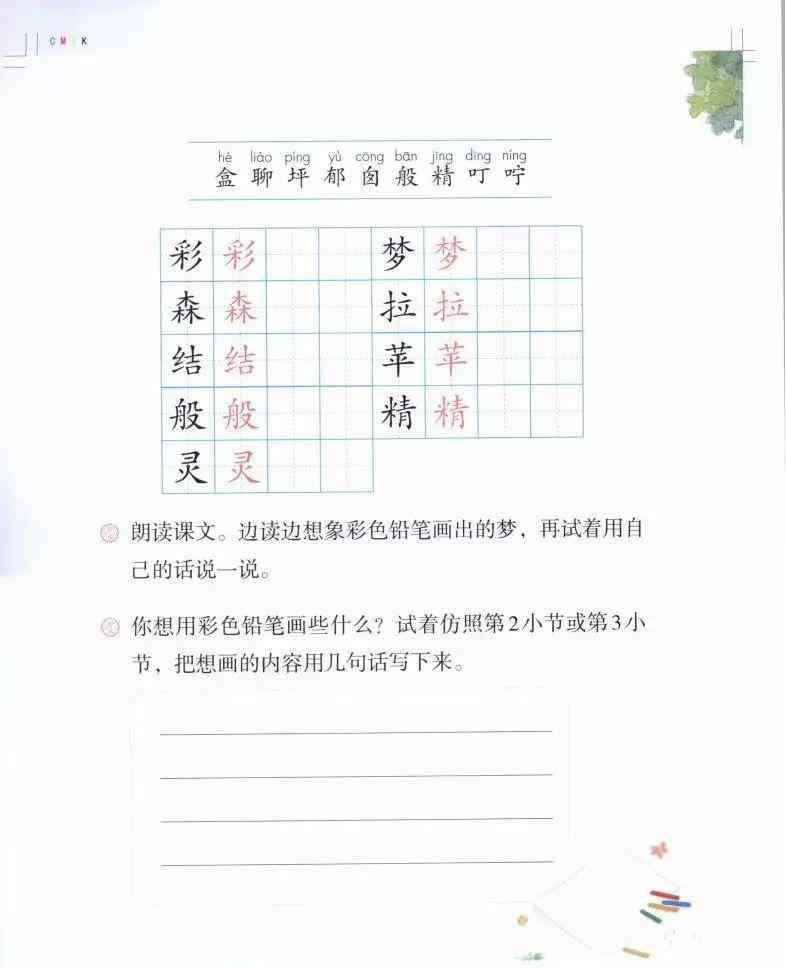 CMYK
hé liáo píng yù cōng bān jīng dīng níng
盒 聊 坪 郁 囱 般 精 叮 咛
彩 彩 梦 梦
森 森 拉 拉
结 结 苹 苹
般 般 精 精
灵 灵
朗读课文。边读边想象彩色铅笔画出的梦，再试着用自
己的话说一说。
你想用彩色铅笔画些什么？试着仿照第2小节或第3小
节，把想画的内容用几句话写下来。